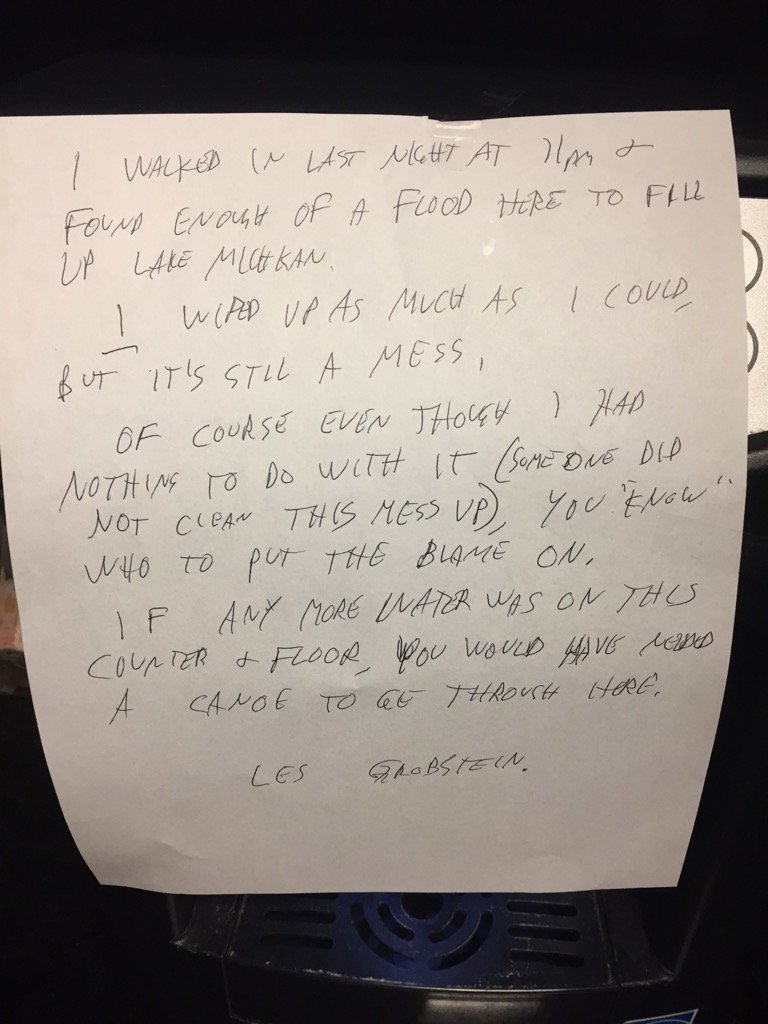 I WALKED IN LAST NIGHT AT 11PM &
FOUND ENOUGH OF A FLOOD HERE TO FILL
UP LAKE MICHIGAN.
I WIPED UP AS MUCH AS I COULD,
BUT IT'S STILL A MESS.
OF COURSE EVEN THOUGH I HAD
NOTHING TO DO WITH IT (SOMEONE DID
NOT CLEAN THIS MESS UP), YOU "KNOW"
WHO TO PUT THE BLAME ON.
IF ANY MORE WATER WAS ON THIS
COUNTER & FLOOR, YOU WOULD HAVE NEEDED
A CANOE TO GE THROUGH HERE.
LES GROBSTEIN.